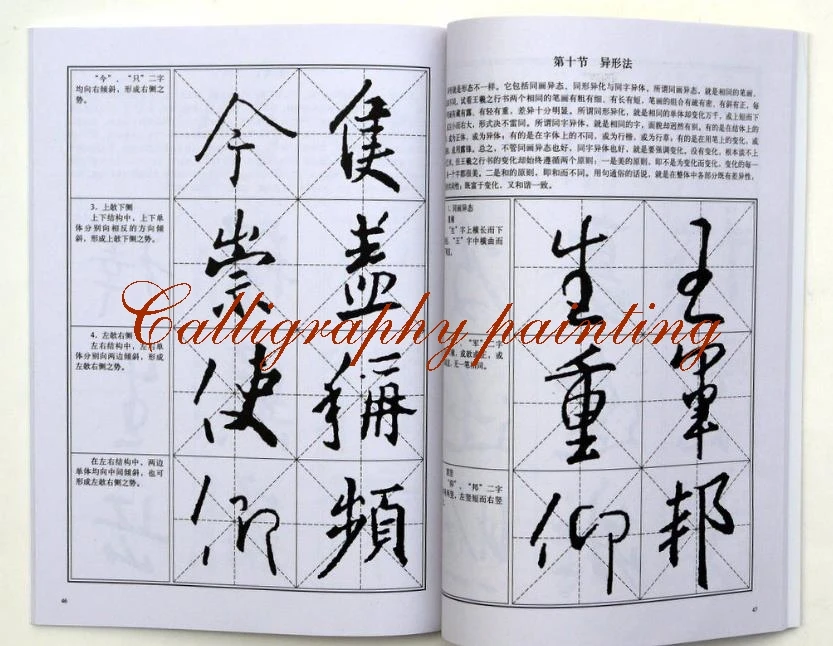 “今”、“只”二字
均向右倾斜，形成右侧之
势。
今 隻
3. 上敧下侧
上下结构中，上下单
体分别向相反的方向倾
斜，形成上敧下侧之势。
崇 盖
4. 左敧右侧
左右结构中，左右单
体分别向两边倾斜，形成
左敧右侧之势。
使 稱
在左右结构中，两边
单体均向中间倾斜，也可
形成左敧右侧之势。
仰 頻
46
第十节 异形法
就是形态不一样。它包括同画异态、同形异化与同字异体。所谓同画异态，就是相同的笔画，
不同。试看王羲之行书两个相同的笔画有粗有细、有长有短，笔画的组合有疏有密、有斜有正，每
有藏有露、有轻有重，差异十分明显。所谓同形异化，就是相同的单体却变化万千，或上短而下
小而右大，形式决不雷同。所谓同字异体，就是相同的字，面貌却迥然有别。有的是在结体上的
成为正体，或为异体；有的是在字体上的不同，或为行楷，或为行草；有的是在用笔上的变化，或
或用露锋。总之，不管同画异态也好，同字异体也好，就是要强调变化。没有变化，根本谈不上
但王羲之行书的变化却始终遵循两个原则：一是美的原则，即不是为变化而变化，变化的每一
一个字都很美。二是和的原则，即和而不同。用句通俗的话说，就是在整体中各部分既有差异性，
性；既富于变化，又和谐一致。
同画异态
“生”字上横长而下
“王”字中横曲而下
生 王
“军”二字
或敧或正，或
无一笔相同。
重 軍
“仰”、“邦”二字
左竖短而右竖
仰 邦
47
Calligraphy painting